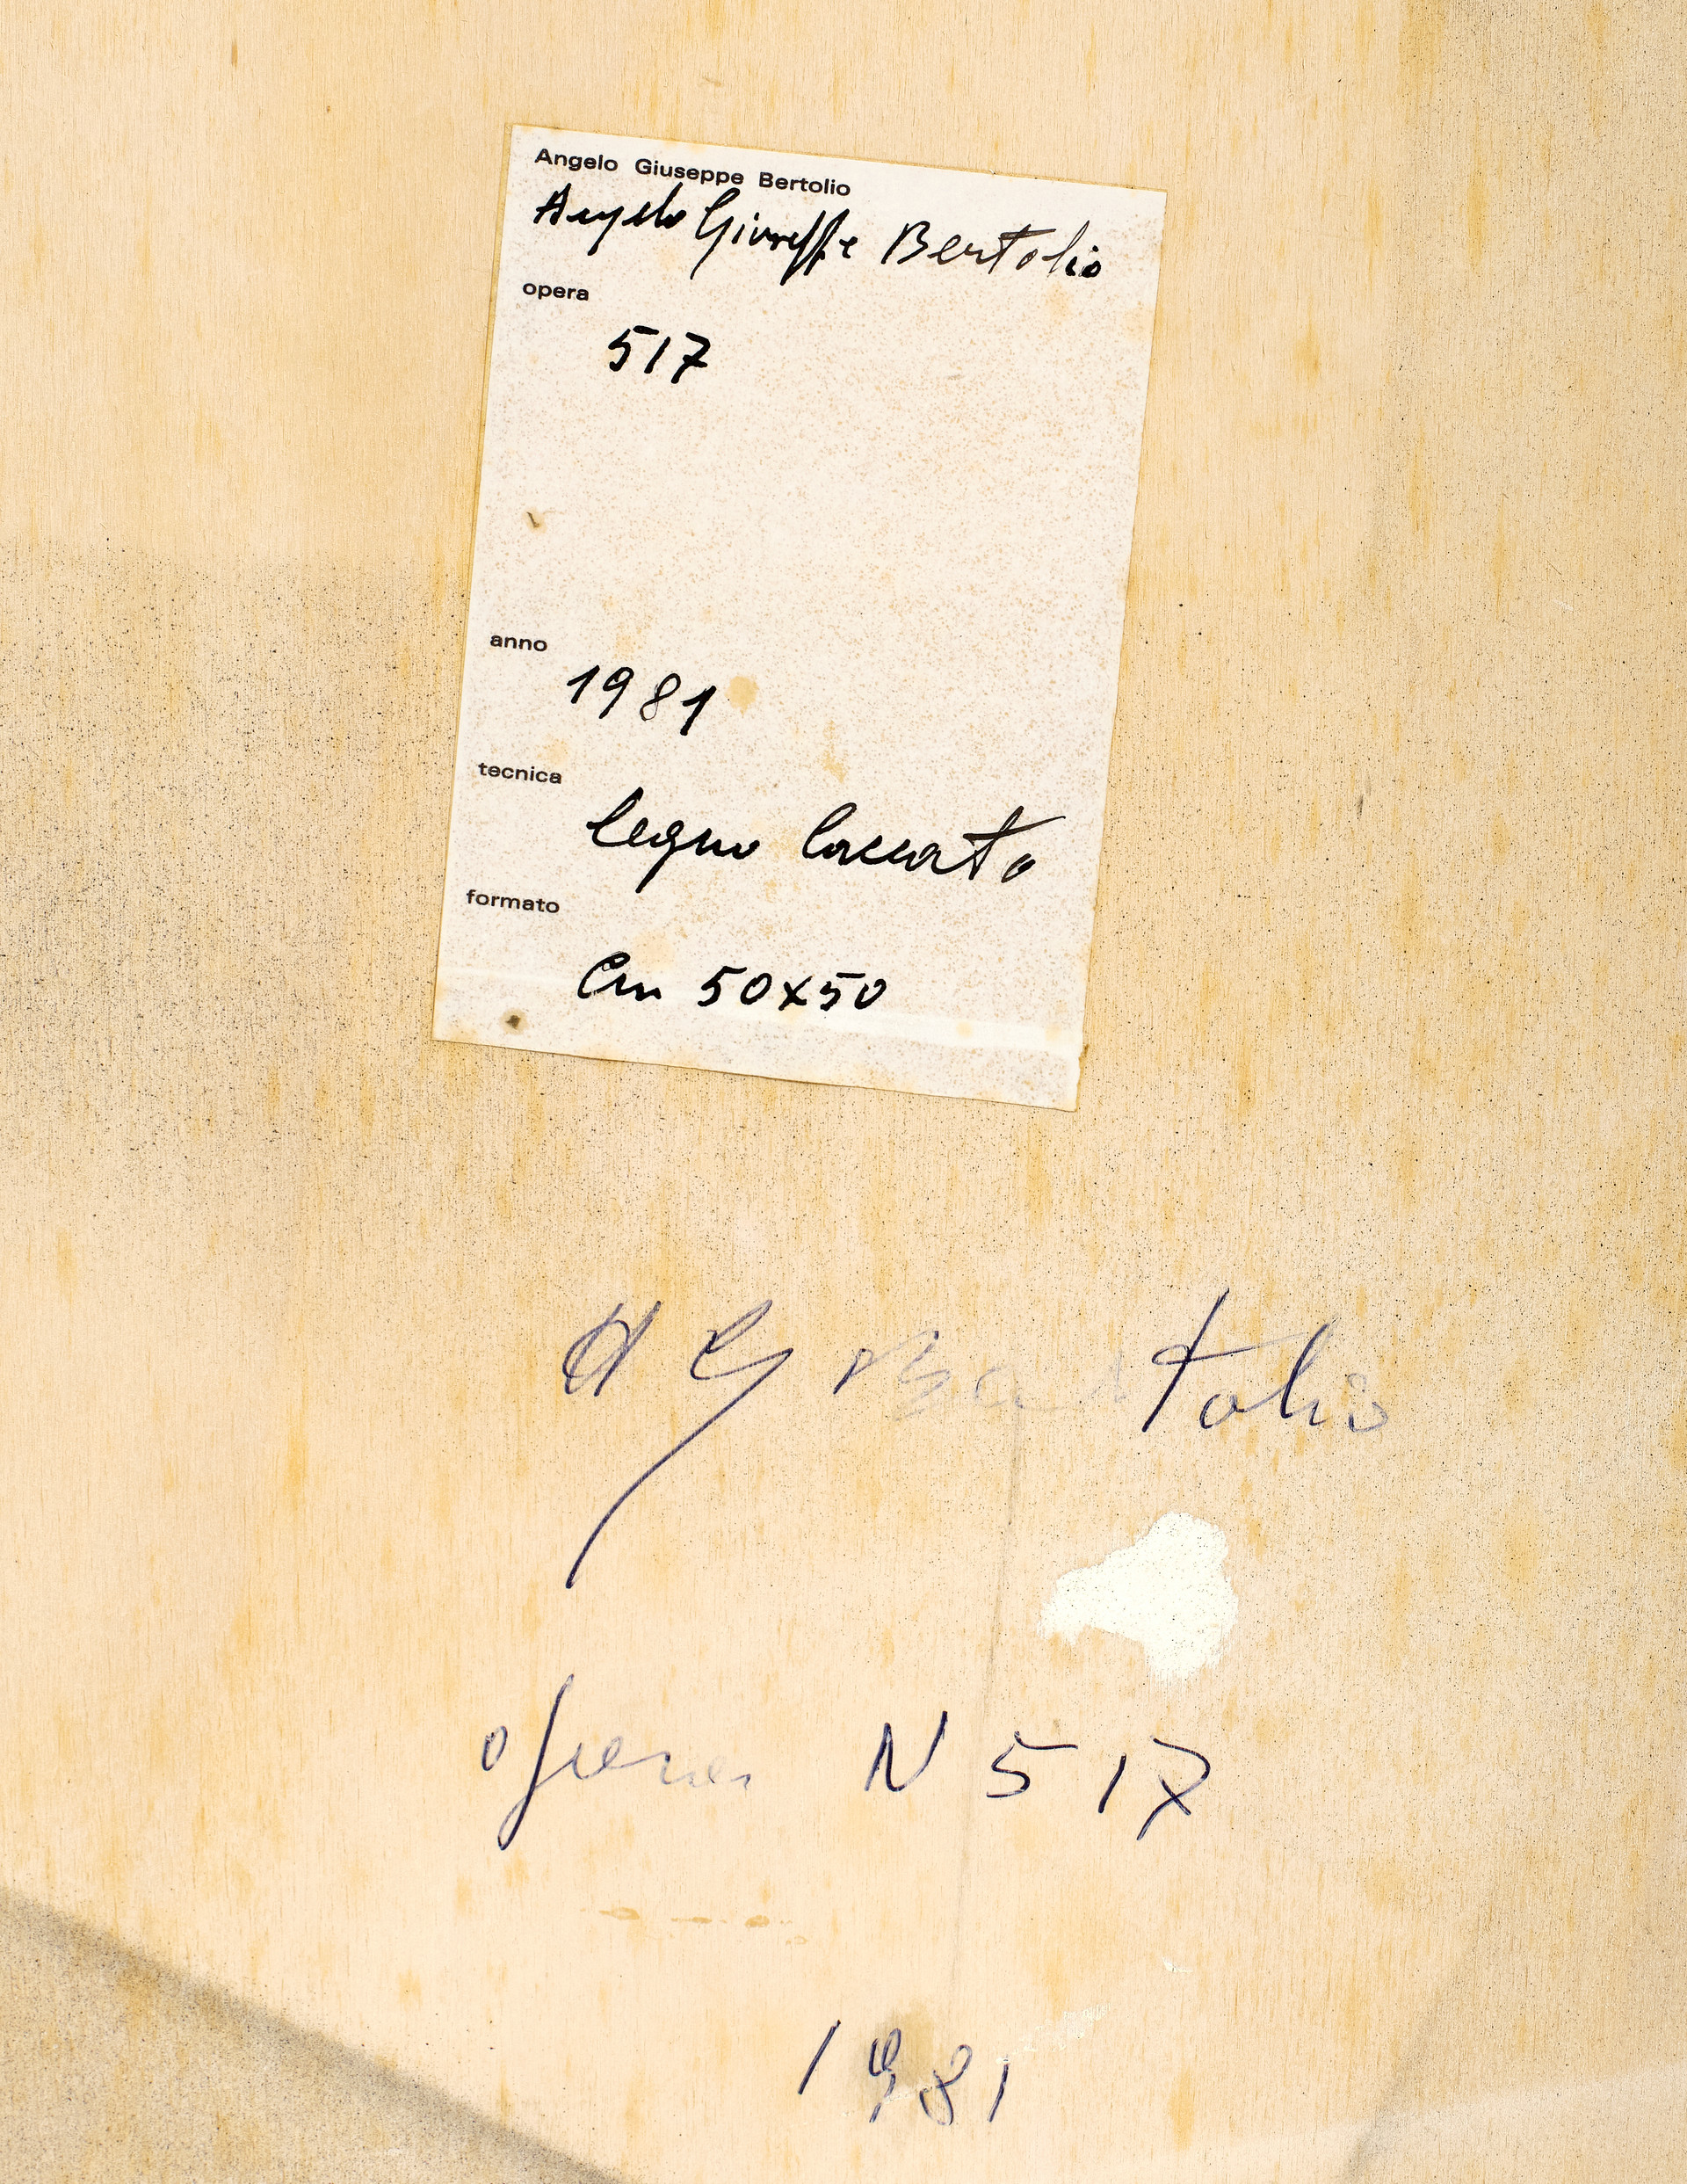 Angelo Giuseppe Bertolio
Angelo Giuseppe Bertolio
opera
517
anno
1981
tecnica
legno laccato
formato
Cm 50x50
A G Bertolio
opera N 517
1981